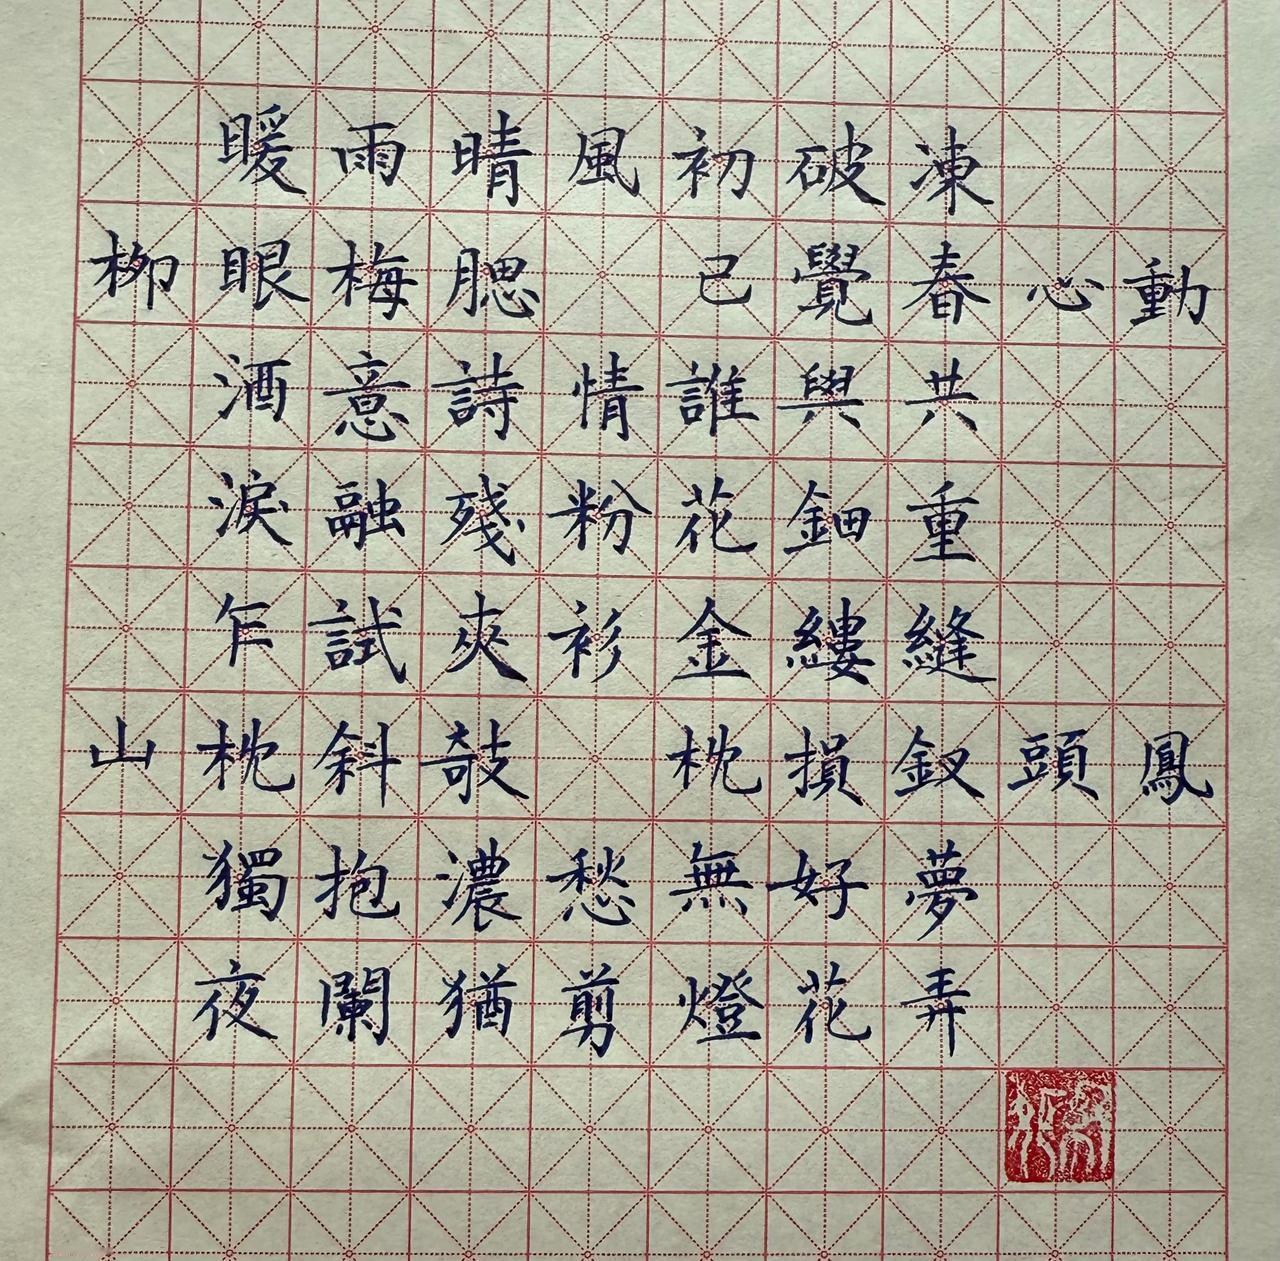 暖雨晴風初破凍
柳眼梅腮 已覺春心動
酒意詩情誰與共
淚融殘粉花鈿重
乍試夾衫金縷縫
山枕斜攲 枕損釵頭鳳
獨抱濃愁無好夢
夜闌猶剪燈花弄